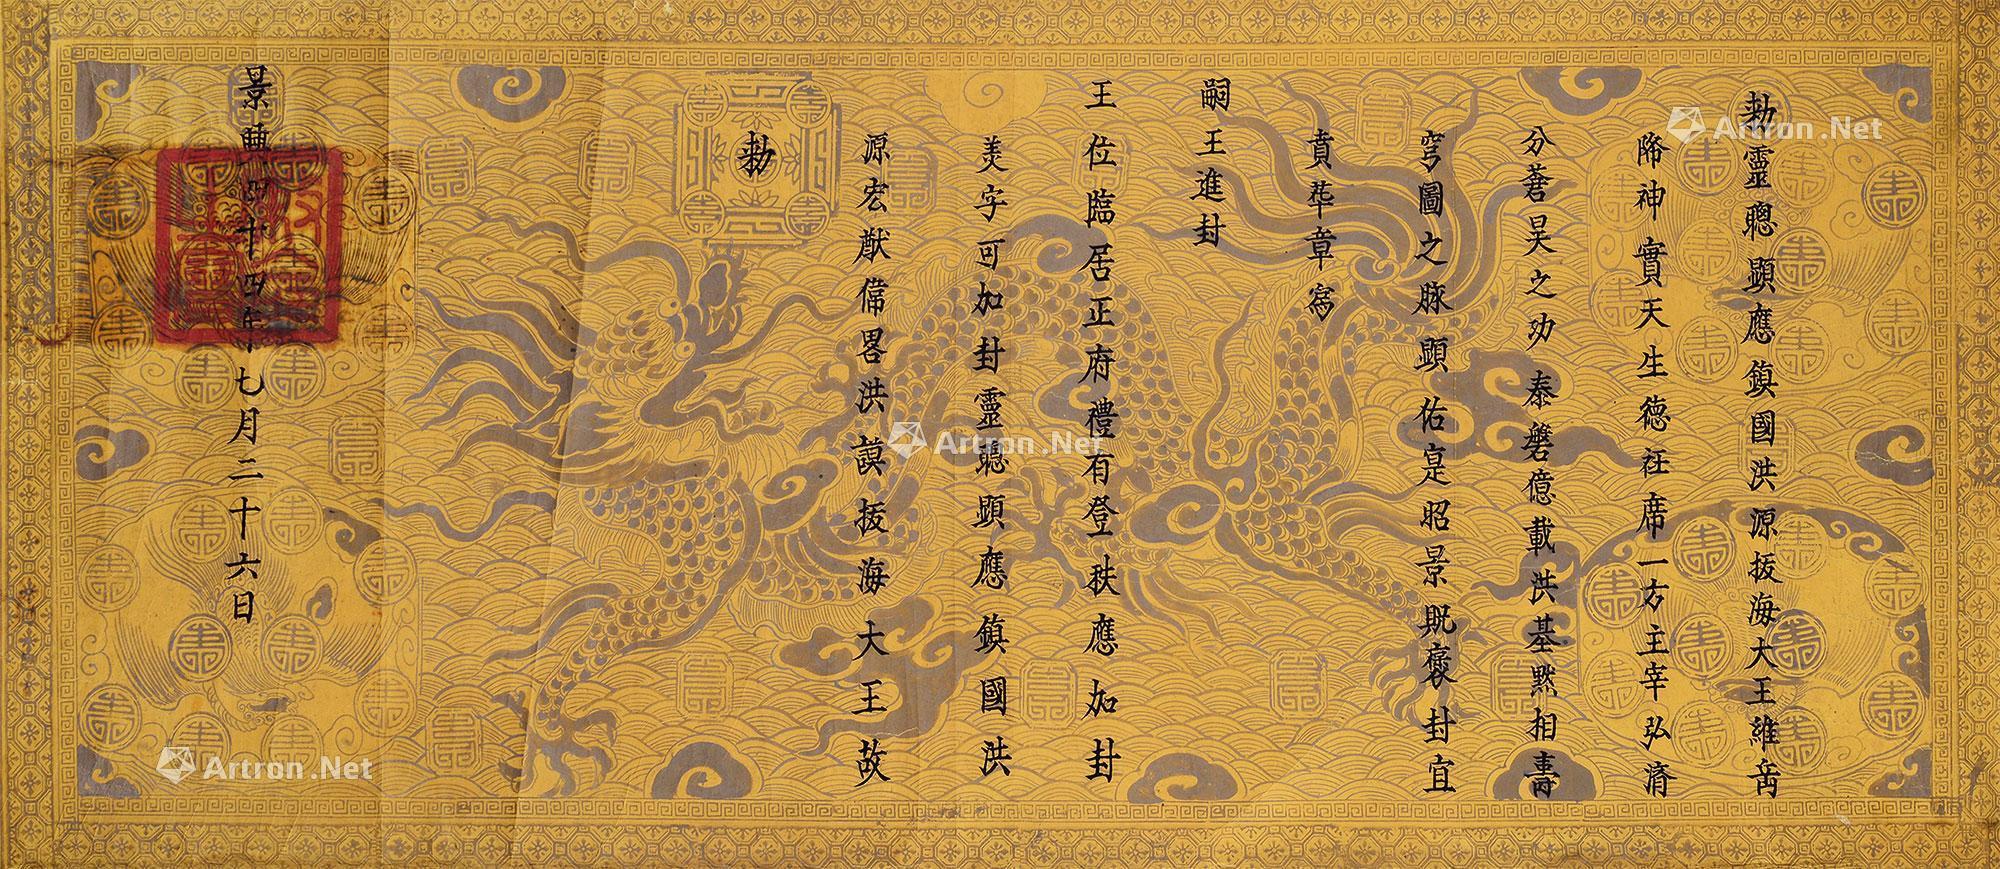 勑靈聰顕應鎮國洪源扳海大王維嵒
降神實天生德衽席一方主宰弘濟
分蒼昊之功泰磐億載洪基黙相壽
穹圖之脉顕佑寔昭景貺褒封宜
賁華章為
嗣王進封
王位臨居正府禮有登秩應加封
美字可加封靈聰顕應鎮國洪
源宏猷偉畧洪謨扳海大王故
勑
景興四十四年七月二十六日
Artron.Net
Artron.Net
Artron.Net